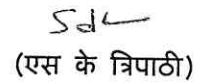 Sd/-
(एस के त्रिपाठी)